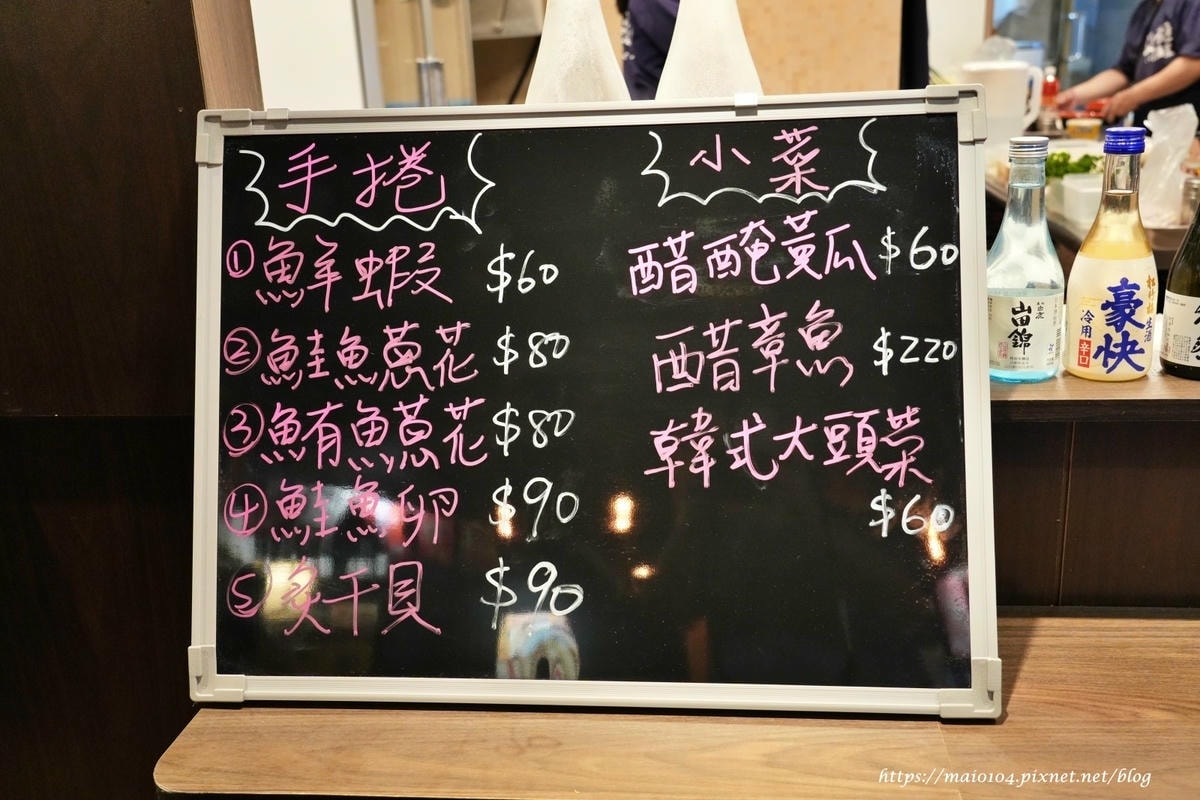 手捲
① 鮮蝦 $60
② 鮭魚蔥花 $80
③ 鮪魚蔥花 $80
④ 鮭魚卵 $90
⑤ 炙干貝 $90
小菜
醋醃黃瓜 $60
醋章魚 $220
韓式大頭菜
$60
山田錦
松竹梅
豪快
生酒
冷用
辛口
https://maio104.pixnet.net/blog